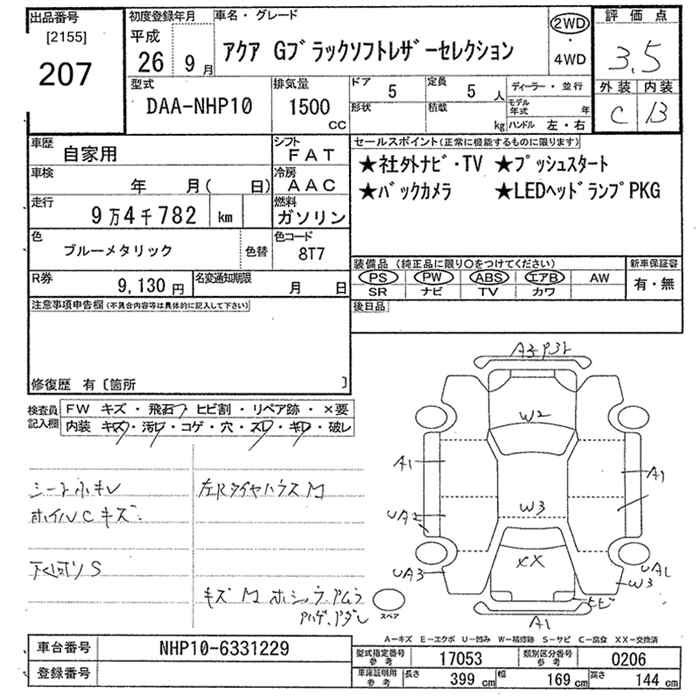 出品番号
[2155]
207
初度登録年月
平成
26 9月
車名・グレード
アクア Gブラックソフトレザーセレクション
2WD
・
4WD
評価点
3.5
外装 内装
C B
型式
DAA-NHP10
排気量
1500
CC
ドア
5
定員
5 人
形状
積載
kg
ディーラー・並行
モデル年式 年
ハンドル 左・右
車歴
自家用
シフト
FAT
車検
年 月( 日)
冷房
AAC
走行
9万4千782 km
燃料
ガソリン
色
ブルーメタリック
色替
色コード
8T7
R券
9,130円
名変通知期限
月 日
セールスポイント(正常に機能するものに限ります)
★社外ナビ・TV ★プッシュスタート
★バックカメラ ★LEDヘッドランプPKG
装備品 (純正品に限り〇をつけてください)
PS PW ABS エアB AW
SR ナビ TV カワ
新車保証書
有・無
後日品
注意事項申告欄 (不具合内容等は具体的に記入して下さい)
修復歴 有〔箇所 〕
検査員記入欄
FW キズ・飛石・ヒビ割・リペア跡・×要
内装 キズ・汚レ・コゲ・穴・スレ・キレ・破レ
シート小キレ
ホイルCキズ
下廻りS
左Rタイヤハウス M
キズ M
スペア
W2
A1
A1
UA2
W3
XX
UA3
UA1
W3
ヒビ
A1
A-キズ E-エクボ U-凹み W-補修跡 S-サビ C-腐食 XX-交換済
車台番号
NHP10-6331229
登録番号
型式指定番号
参考
17053
類別区分番号
参考
0206
車庫証明用
参考
長さ
399 cm
幅
169 cm
高さ
144 cm